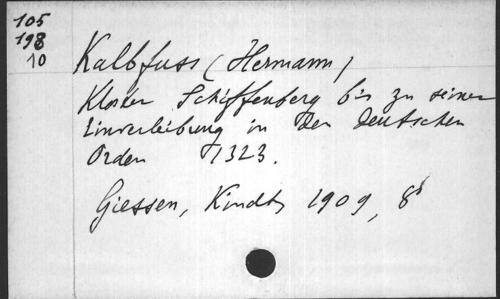 105
198
10
Kalbfuss (Hermann)
Kloster Schiffenberg bis zu seiner
Einverleibung in den Deutschen
Orden 1323.
Giessen, Kindt, 1909, 8°